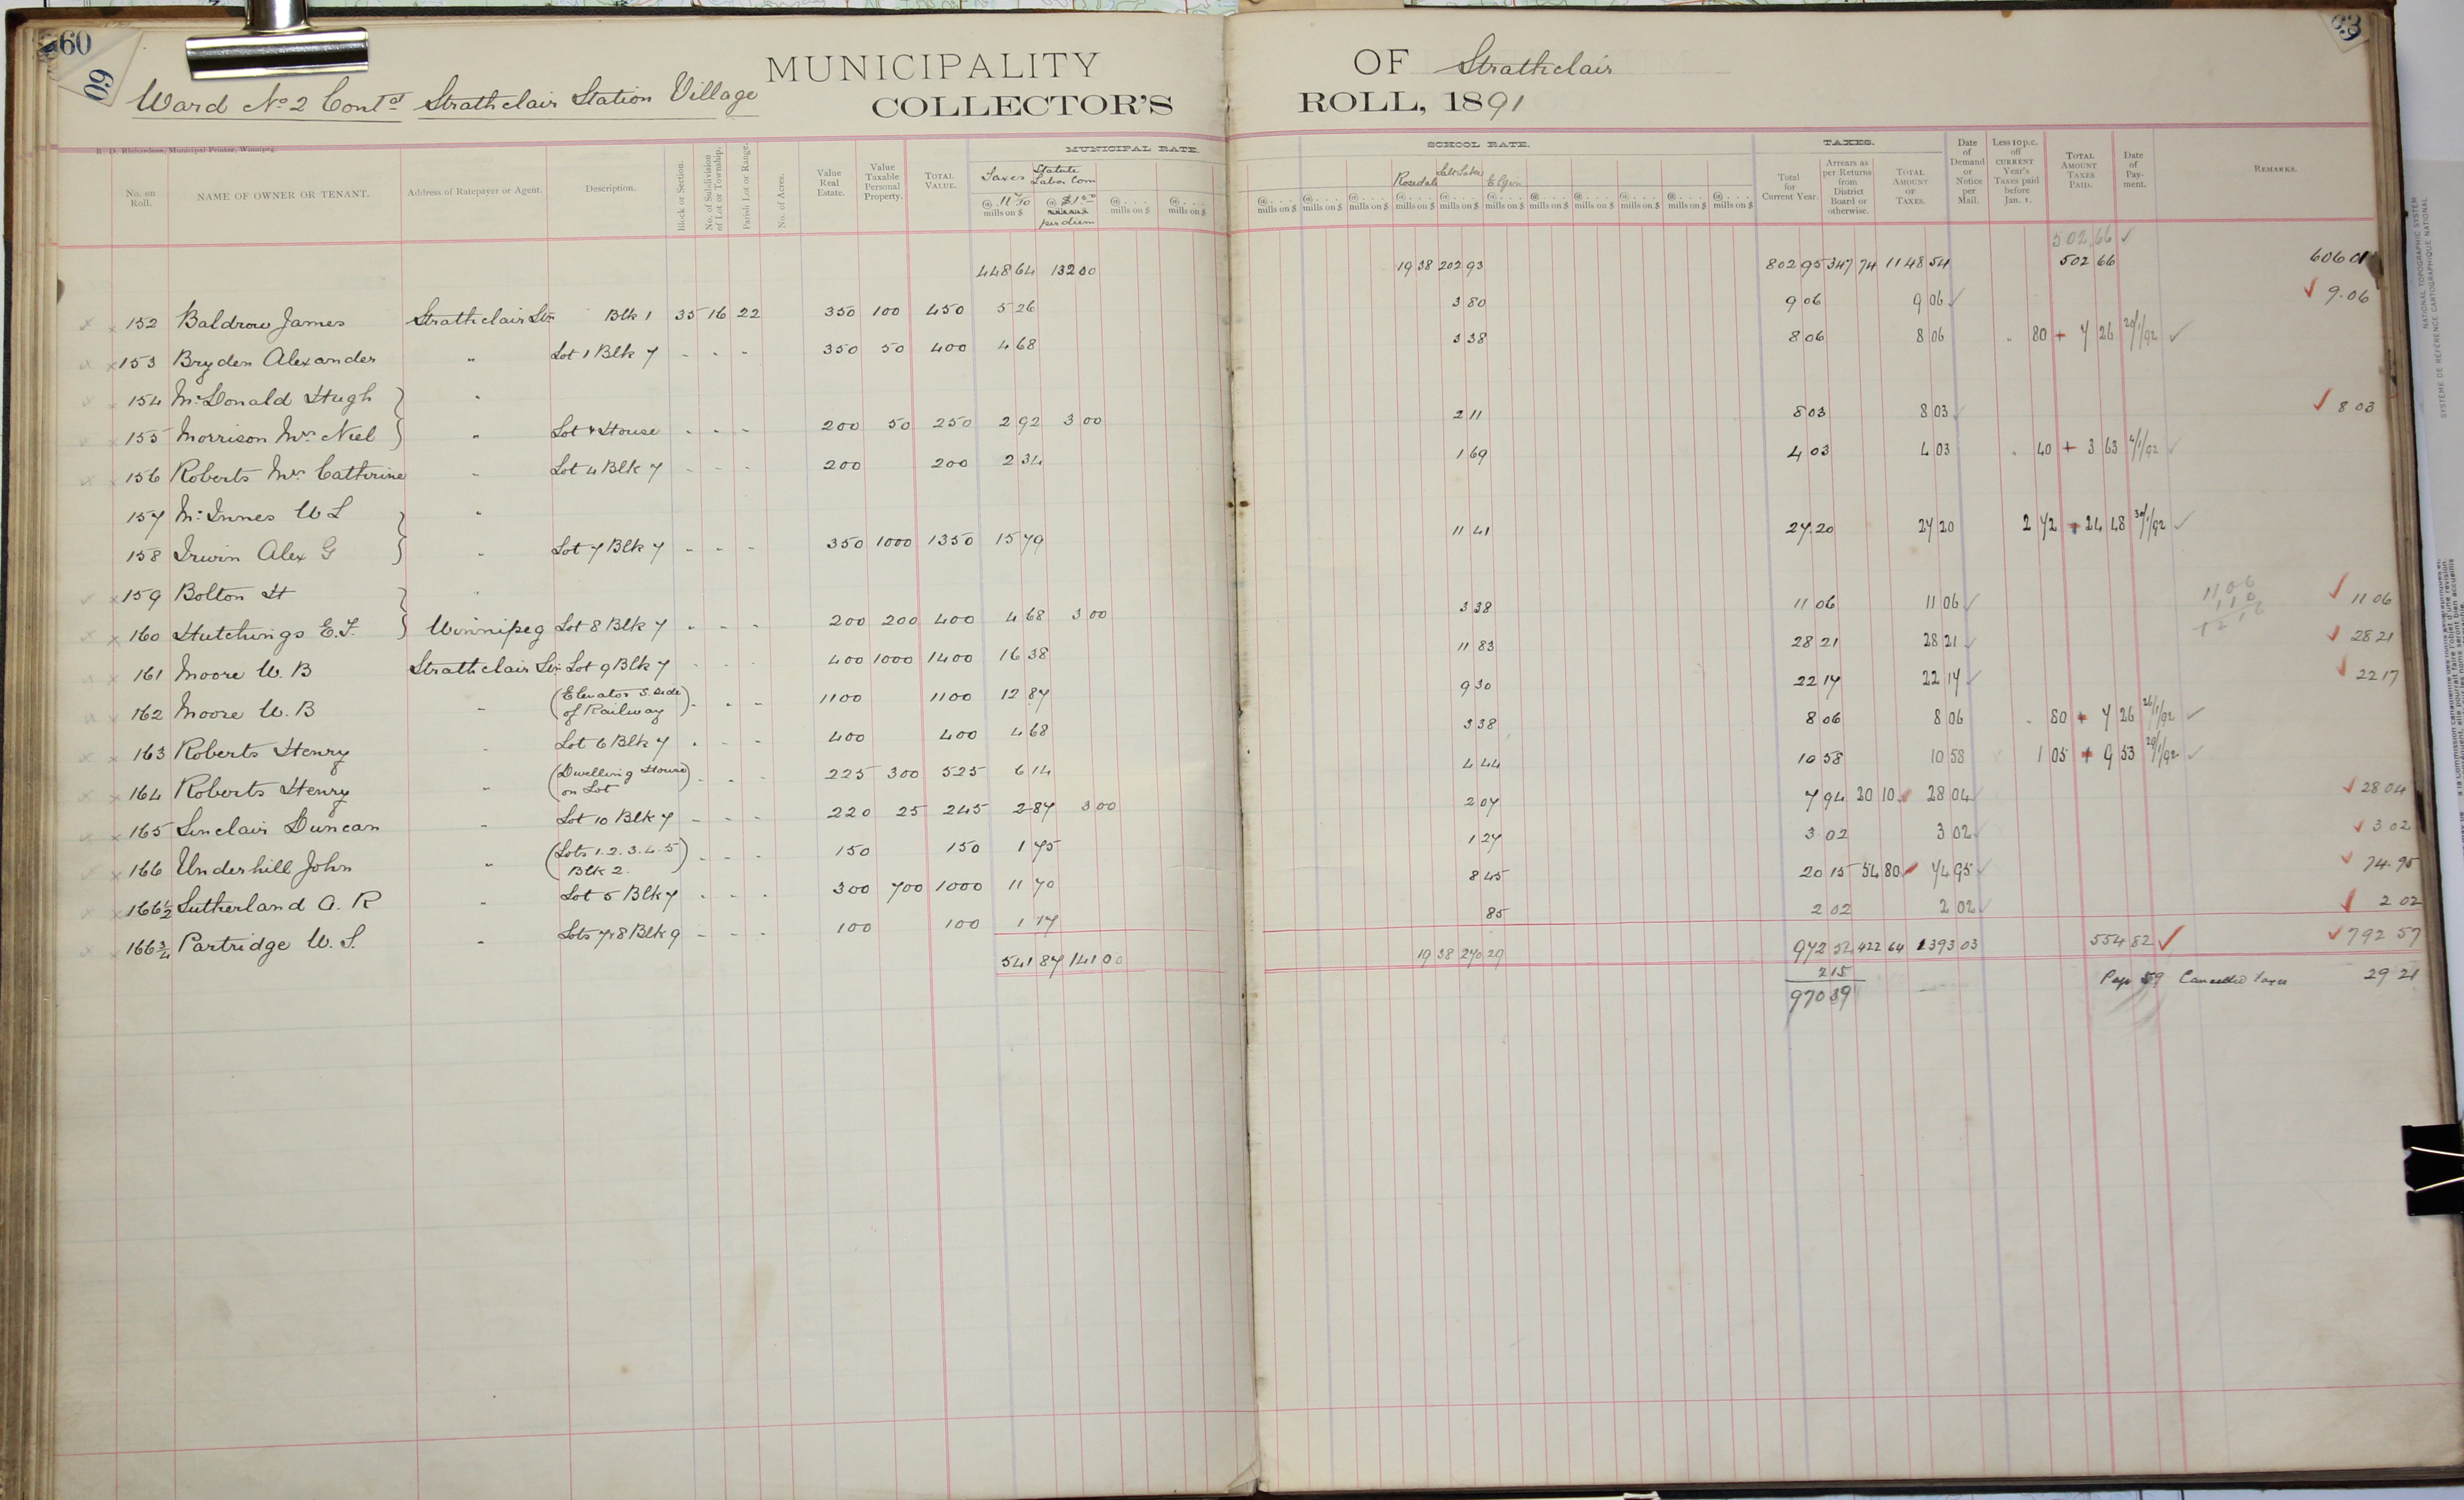 60
60
63
MUNICIPALITY OF Strathclair
Ward No 2 Cont'd Strathclair Station Village
COLLECTOR'S ROLL, 1891
R. D. Richardson, Municipal Printer, Winnipeg.
MUNICIPAL RATE. SCHOOL RATE. TAXES.
No. on Roll. NAME OF OWNER OR TENANT. Address of Ratepayer or Agent. Description. Block or Section. No. of Subdivision of Lot or Township. Parish Lot or Range. No. of Acres. Value Real Estate. Value Taxable Personal Property. TOTAL VALUE. Taxes @ 11 70 mills on $ Statute Labor Com @ $1 00 per diem @ . . . . mills on $ @ . . . . mills on $
@ . . . . mills on $ @ . . . . mills on $ @ . . . . mills on $ Rosedale @ . . . . mills on $ Salt Lake @ . . . . mills on $ Elgin @ . . . . mills on $ @ . . . . mills on $ @ . . . . mills on $ @ . . . . mills on $ @ . . . . mills on $ @ . . . . mills on $ Total for Current Year. Arrears as per Returns from District Board or otherwise. TOTAL AMOUNT OF TAXES. Date of Demand or Notice per Mail. Less 10 p.c. off CURRENT Year's Taxes paid before Jan. 1. TOTAL AMOUNT TAXES PAID. Date of Payment. REMARKS.
502 66 ✓
448 64 132 00 19 38 202 93 802 95 347 74 1148 54 502 66 606 01
152 Baldrow James Strathclair Stn Blk 1 35 16 22 350 100 450 5 26 3 80 9 06 9 06 ✓ ✓ 9.06
153 Bryden Alexander " Lot 1 Blk 7 - - - 350 50 400 4 68 3 38 8 06 8 06 " 80 + 7 26 20/1/92 ✓
154 McDonald Hugh "
155 Morrison Mrs Niel " Lot & House - - - 200 50 250 2 92 3 00 2 11 8 03 8 03 ✓ ✓ 8 03
156 Roberts Mrs Catherine " Lot 4 Blk 7 - - - 200 200 2 34 1 69 4 03 4 03 " 40 + 3 63 4/1/92 ✓
157 McInnes W L "
158 Irwin Alex G " Lot 7 Blk 7 - - - 350 1000 1350 15 79 11 41 27.20 27 20 2 72 + 24 48 30/1/92 ✓
159 Bolton H "
160 Hutchings E. F. Winnipeg Lot 8 Blk 7 - - - 200 200 400 4 68 3 00 3 38 11 06 11 06 ✓ 11 06 1 10 12 16 ✓ 11 06
161 Moore W. B Strathclair Stn Lot 9 Blk 7 - - - 400 1000 1400 16 38 11 83 28 21 28 21 ✓ ✓ 28 21
162 Moore W. B " (Elevator S. Side of Railway) - - - 1100 1100 12 87 9 30 22 17 22 17 ✓ ✓ 22 17
163 Roberts Henry " Lot 6 Blk 7 - - - 400 400 4 68 3 38 8 06 8 06 " 80 + 7 26 26/1/92 ✓
164 Roberts Henry " (Dwelling House on Lot) - - - 225 300 525 6 14 4 44 10 58 10 58 1 05 + 9 53 29/1/92 ✓
165 Sinclair Duncan " Lot 10 Blk 7 - - - 220 25 245 2 87 3 00 2 07 7 94 20 10 ✓ 28 04 ✓ ✓ 28 04
166 Underhill John " (Lots 1. 2. 3. 4. 5 Blk 2.) - - - 150 150 1 75 1 27 3 02 3 02 ✓ ✓ 3 02
166½ Sutherland A. R " Lot 5 Blk 7 - - - 300 700 1000 11 70 8 45 20 15 54 80 ✓ 74 95 ✓ ✓ 74.95
166¾ Partridge W. S. " Lots 7 & 8 Blk 9 - - - 100 100 1 17 85 2 02 2 02 ✓ ✓ 2 02
541 87 141 00 19 38 270 29 972 54 422 64 1393 03 554 82 ✓ ✓ 792 57
2 15 Page 59 Cancelled taxes 29 21
970 39
NATIONAL TOPOGRAPHIC SYSTEM
SYSTÈME DE RÉFÉRENCE CARTOGRAPHIQUE NATIONAL